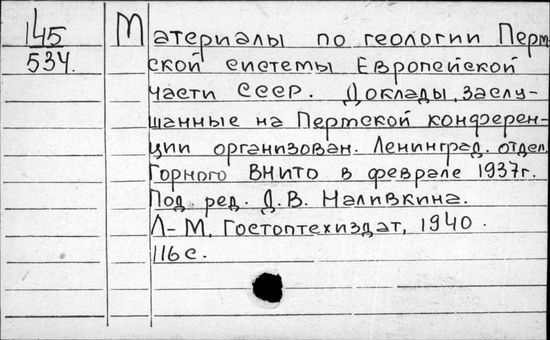 145
534.
Материалы по геологии Перм-
ской системы Европейской
части СССР. Доклады, заслу-
шанные на Пермской конферен-
ции организован. Ленинград. отдел.
Горного ВНИТО в феврале 1937г.
Под ред. Д.В. Наливкина.
Л-М, Гостоптехиздат, 1940.
116с.